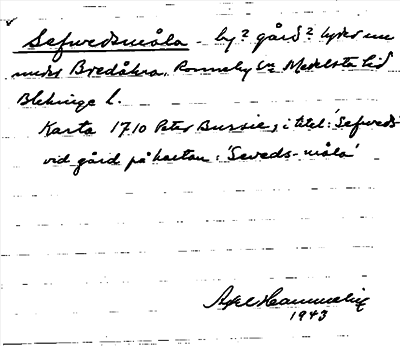 Sefvedsmåla - by? gård? lyder nu
under Bredåkra, Ronneby sn Medelsta hd
Blekinge l.
Karta 1710 Peter Bussie, i titel: 'Sefveds-
vid gård på kartan: 'Seveds-måla'
Axel Hammelig
1943